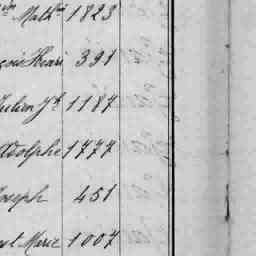 Math 1823
çois Henri 391
Julien Jh 1187
Adolphe 1777
Joseph 451
st Marie 1007